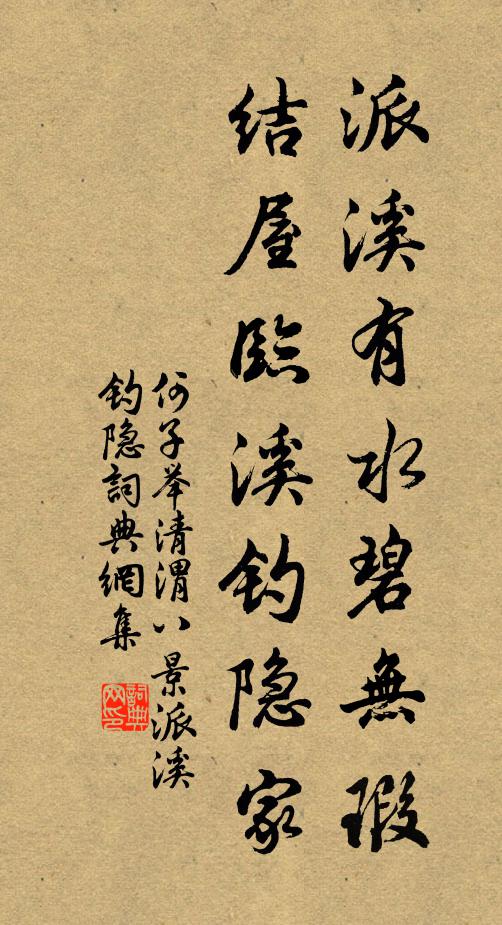 派溪有水碧無瑕
结屋臨溪钓隐家
何子举清渭八景派溪
钓隐詞典網集
詞典网印